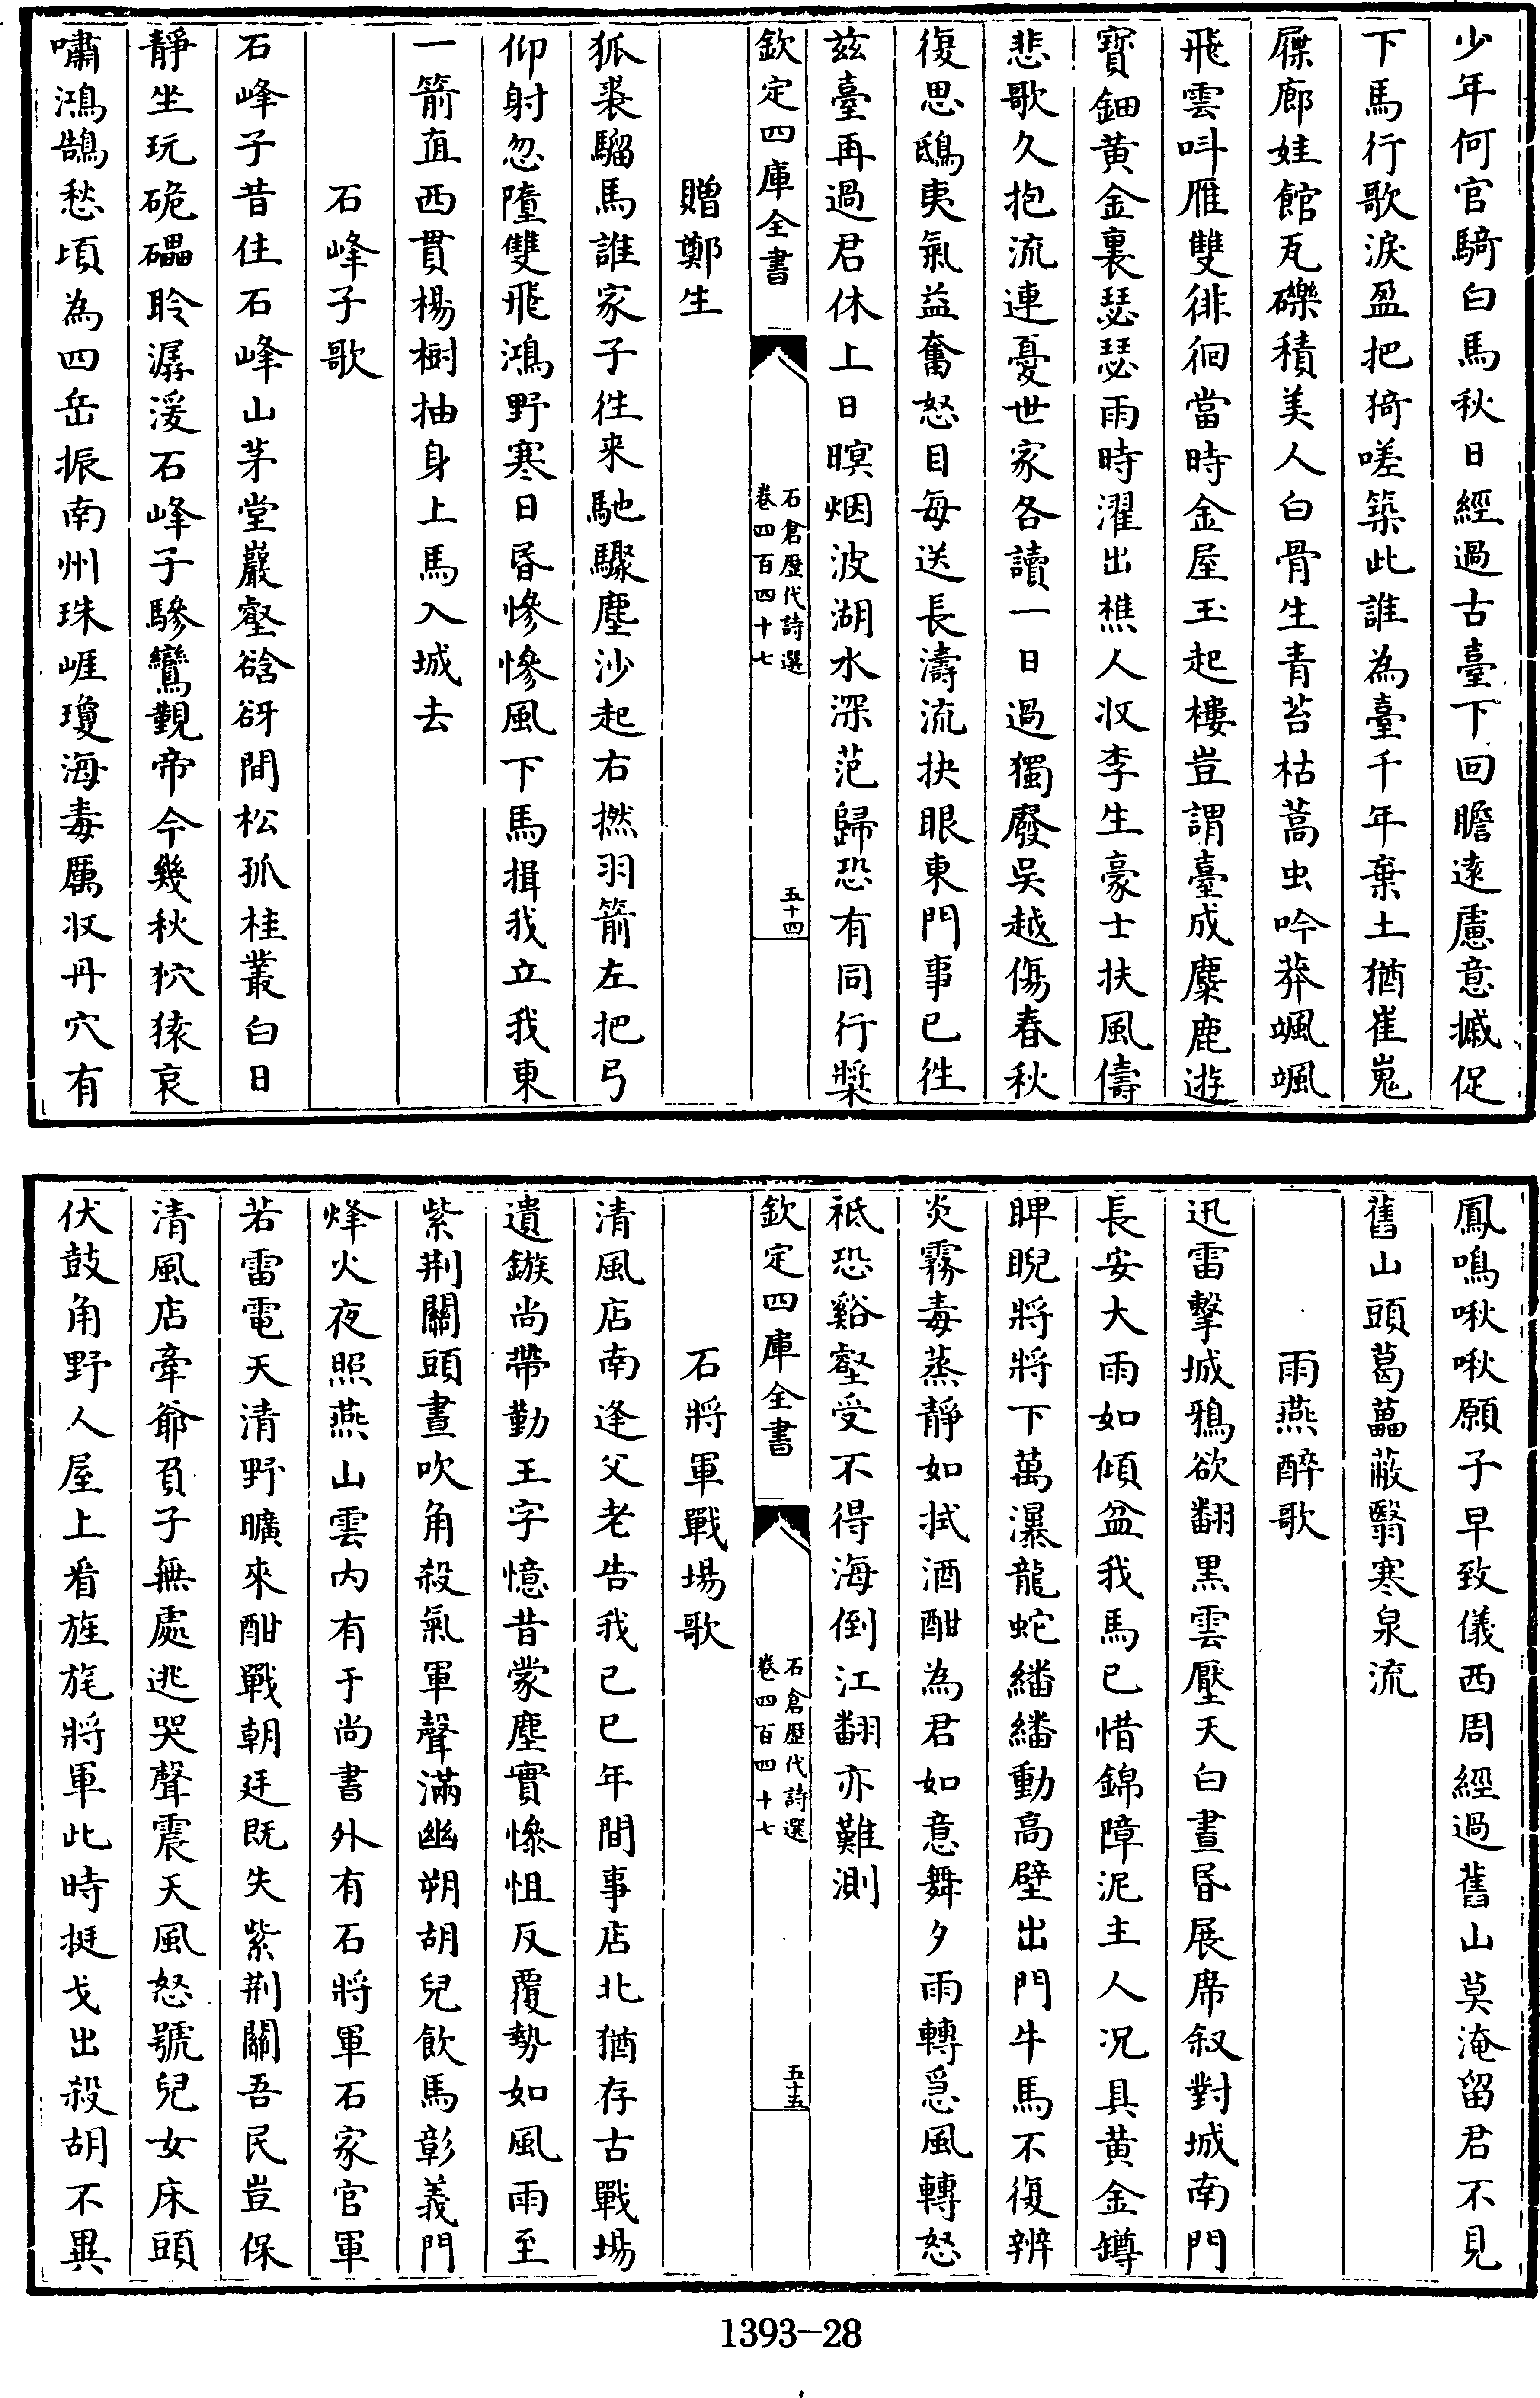 少年何官騎白馬秋日經過古臺下回瞻遠慮意摵促
下馬行歌淚盈把猗嗟築此誰為臺千年棄土猶崔嵬
屧廊娃館瓦礫積美人白骨生青苔枯蒿虫吟莽颯颯
飛雲呌雁雙徘徊當時金屋玉起樓豈謂臺成麋鹿遊
寳鈿黃金裏瑟瑟雨時濯出樵人收李生豪士扶風儔
悲歌久抱流連憂世家各讀一日過獨廢吳越傷春秋
復思鴟夷氣益奮怒目每送長濤流抉眼東門事已徃
兹臺再過君休上日暝烟波湖水深范歸恐有同行槳
欽定四庫全書
石倉歷代詩選
卷四百四十七
五十四
贈鄭生
狐裘騮馬誰家子徃来馳驟塵沙起右撚羽箭左把弓
仰射忽墮雙飛鴻野寒日昏慘慘風下馬揖我立我東
一箭直西貫楊樹抽身上馬入城去
石峰子歌
石峰子昔住石峰山茅堂巖壑谽谺間松孤桂叢白日
靜坐玩硊礧聆潺湲石峰子驂鸞覲帝今幾秋狖猿哀
嘯鴻鵠愁頃為四岳振南州珠崕瓊海毒厲收丹穴有
鳳鳴啾啾願子早致儀西周經過舊山莫淹留君不見
舊山頭葛藟蔽翳寒泉流
雨燕醉歌
迅雷擊城鴉欲翻黒雲壓天白晝昏展席叙對城南門
長安大雨如傾盆我馬已惜錦障泥主人况具黃金罇
睥睨將將下萬瀑龍蛇繙繙動高壁出門牛馬不復辨
炎霧毒蒸靜如拭酒酣為君如意舞夕雨轉急風轉怒
祗恐谿壑受不得海倒江翻亦難測
欽定四庫全書
石倉歷代詩選
卷四百四十七
五十五
石將軍戰場歌
清風店南逢父老告我已巳年間事店北猶存古戰場
遺鏃尚帶勤王字憶昔蒙塵實慘怛反覆勢如風雨至
紫荆關頭晝吹角殺氣軍聲滿幽朔胡兒飲馬彰義門
烽火夜照燕山雲内有于尚書外有石將軍石家官軍
若雷電天清野曠來酣戰朝廷既失紫荆關吾民豈保
清風店牽爺負子無處逃哭聲震天風怒號兒女床頭
伏鼓角野人屋上看旌旄將軍此時挺戈出殺胡不異
1393—28